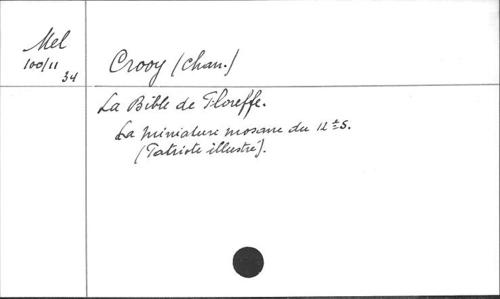 Mel
100/11
34
Crooy (chan.)
La Bible de Floreffe.
La miniature mosane du 12e S.
(Patriote illustré).